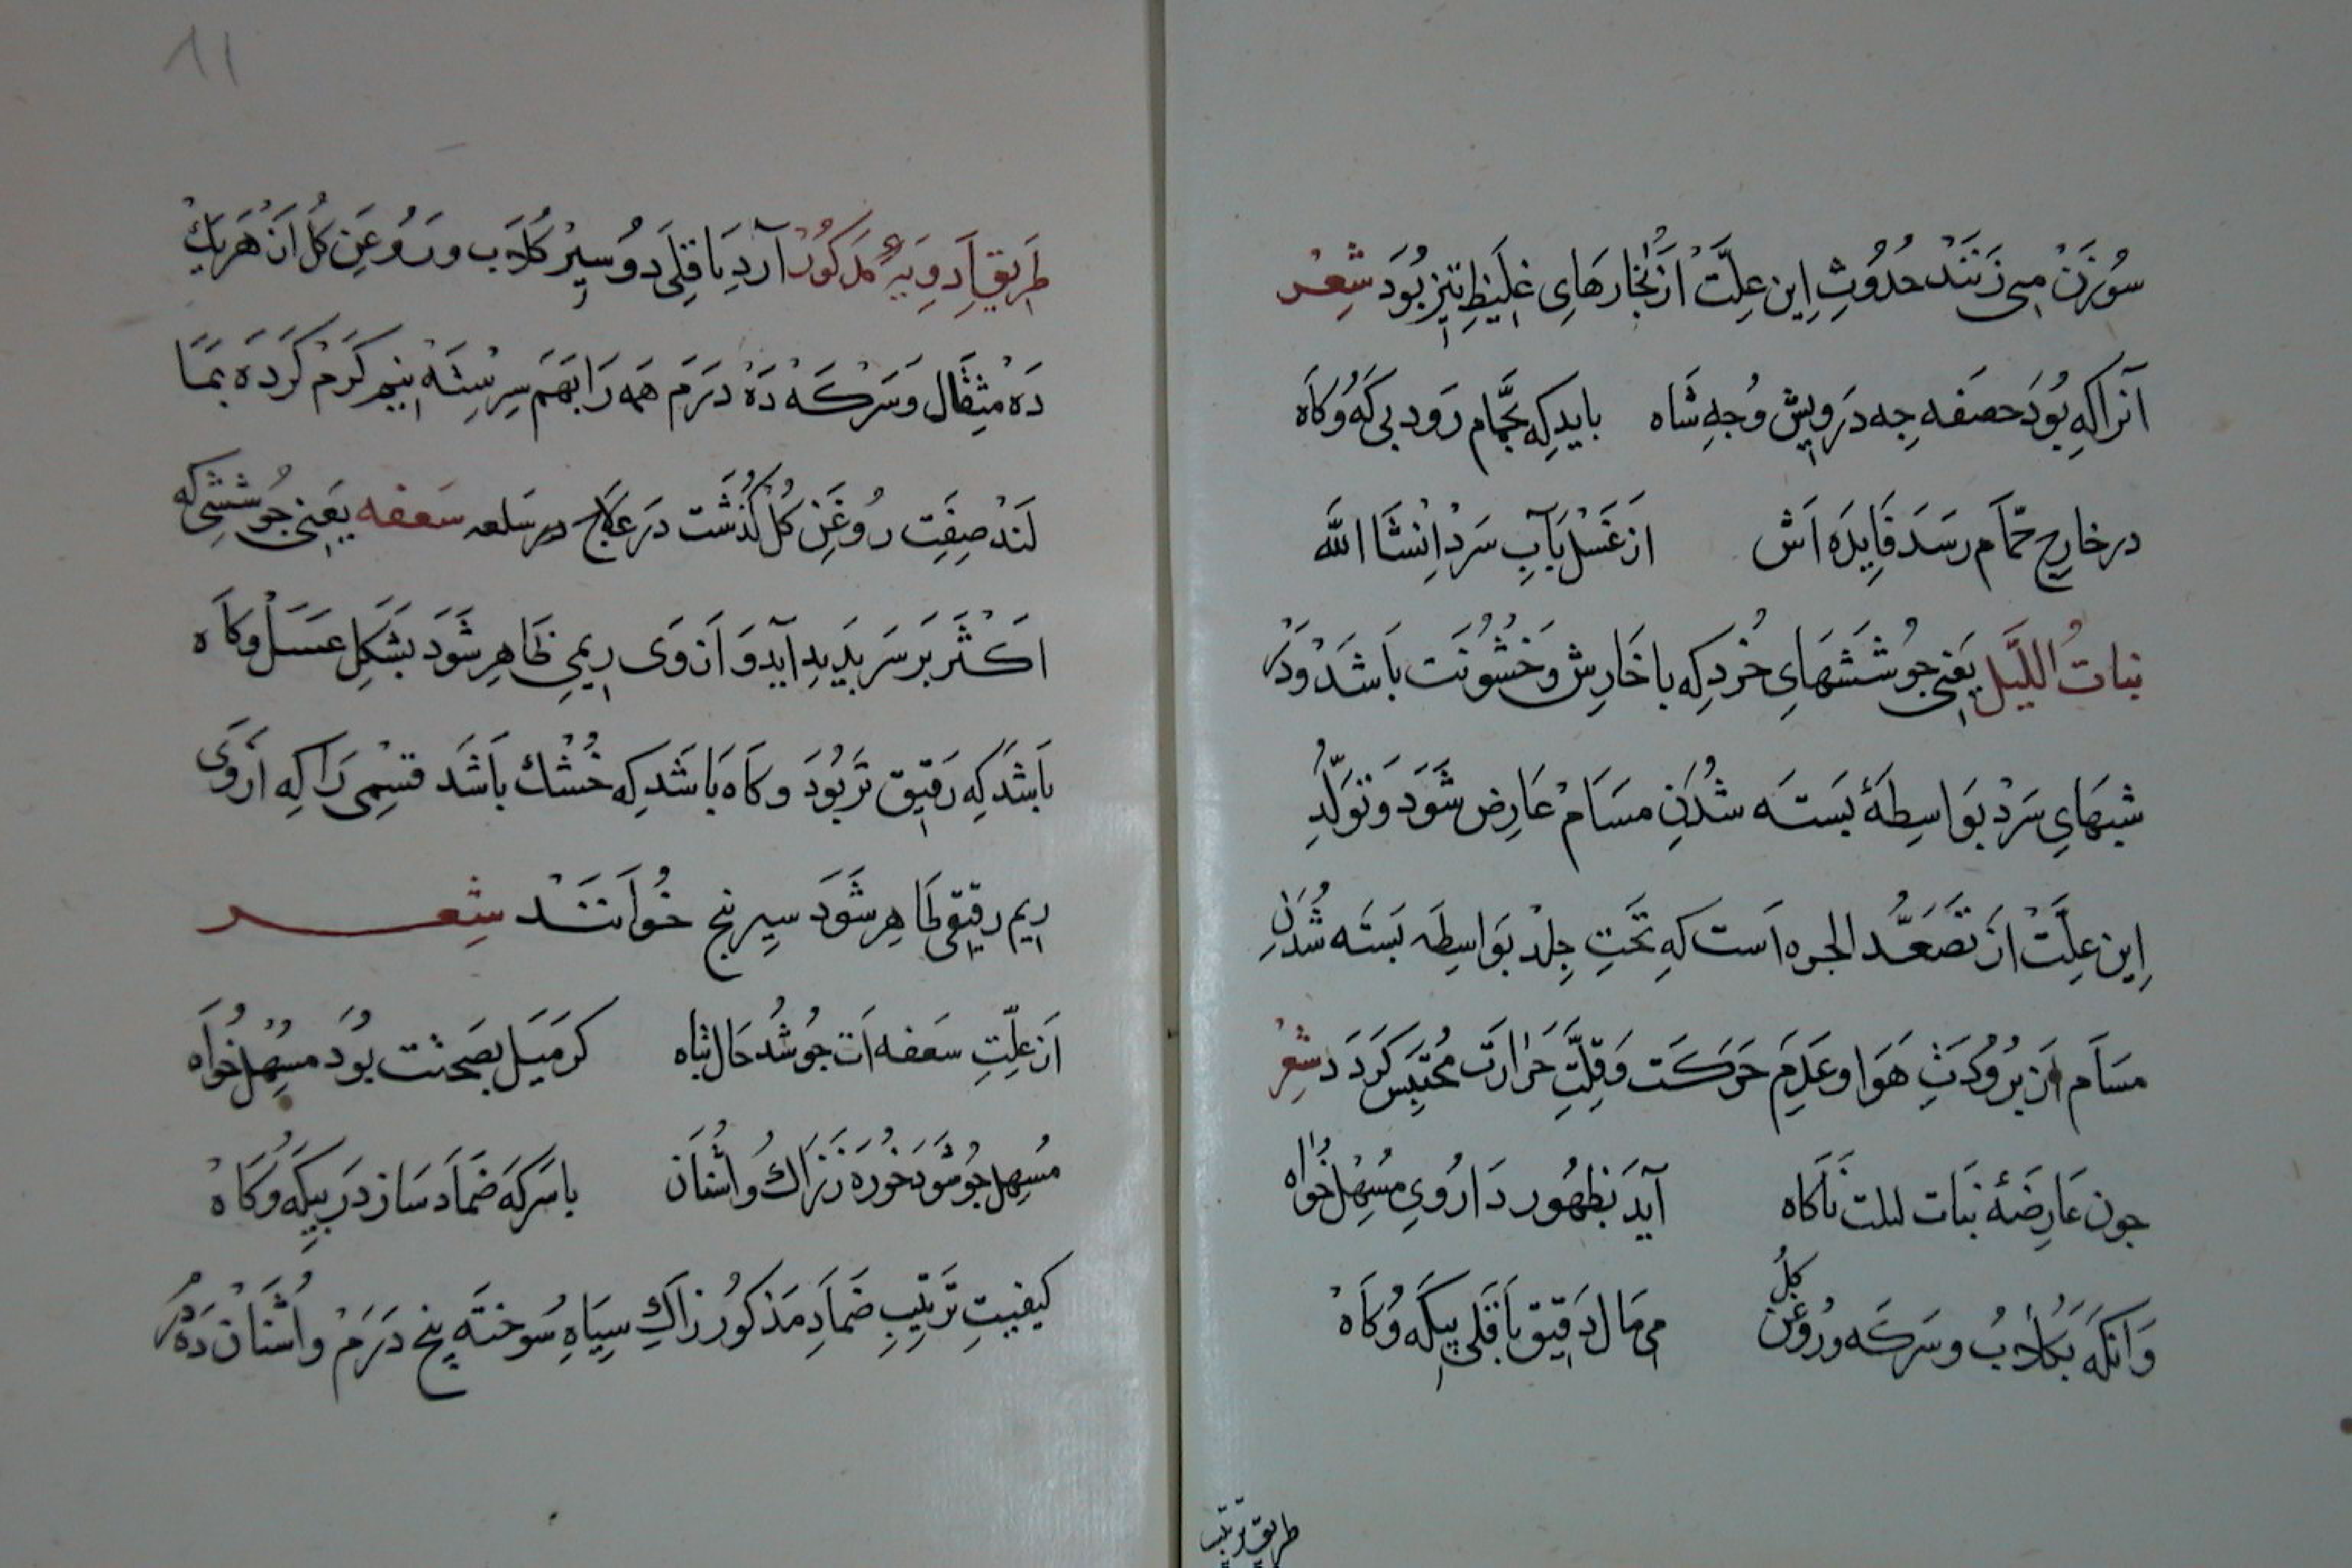 سُوزَنْ مِی زَنَنْد حُدُوُثِ اِین عِلَّتْ اَزْ بُخارهَایِ غَلِیظِ تیزْ بُوَد شِعْر
آنرا کِه بُوَد حصَفه جِه دَرویش وُ جِه شَاه باید کِه بَحَّمام رَود بی کَه وُ کَاه
در خارِجِ حمَّام رسَد فَایِدَه اَش از غَسْل بَآبِ سَرْد اِنْشَا اللَّه
بناتُ اللَّیل یَعْنی جُوشَشهَایِ خُرد کِه با خَارِش وَ خُشُونَت بَاشَد وَ دَرْ
شبهَایِ سَرْد بوَاسِطَهٔ بَستَه شُدَنِ مسَامْ عَارِض شَوَد وَ تَوَلّدِ
اِین عِلَّتْ از تَصَعُّد الجره است کِه تَحتِ جِلد بوَاسِطَه بَستَه شُدَنِ
مسَام از بُرُودَتِ هَوَا و عَدِمَ حَرَکَت وَ قِلَّتِ حَرَارَت مُحْتَبِس کَرَدَد شِعْر
جون عَارِضَهٔ بنَات لیلت نَاکَاه آیَد بَظهُور دَارُویِ مُسْهِل خُواه
وَانکَه بَکُلَاب وَ سَرکَه وَ رُوغَن کلُ می مَال دَقیق بَاقلی بیکَه وُ کَاهْ
طریق ترتیب
۸۱
طَرِیقِ اَدوِیَهٔ مَذکُورْ آردِ بَاقِلَی دوُ سِیرْ کُلاب و رَوُغَنِ کُل اَنْ هَریَكْ
دَه مِثْقَال وَ سَرکَهْ دَهْ درَمَ همَه رَا بَهَم سِرِشْتَه نِیم کَرَمْ کَردَه بمَّا
لَنْد صِفَتِ رُوغَنِ کُل کُذَشْت دَر عِلَاجِ در سَلعه سَعفه یَعنِی جُوشَشِی کَه
اَکَثَر بَر سَر بَدِید آیَد وَ اَز وَی رِیمِی ظَاهِر شَوَد بَشَکلِ عَسَلْ وکَاَه
بَاشَد کِه رَقِیق تَر بُوَد وکَاَه بَاشَد کِه خُشْك بَاشَد قسِمْی رَا کِه اَز وَی
رِیم رقیق ظَاهِر شَوَد سِیرنج خُوَانَنَد شِعر
اَز عِلَّتِ سَعفه اَت جو شُد حَال تباه کر مَیل بصَحتت بُوَد مُسْهِل خُوَاه
مُسْهِل جُو شَوَد خُورده زَزَاكْ وُ اشْنَان با سَرکَه ضَمَاد ساز دَر بیکَه وُ کَاَه
کیفیتِ تَرتِیبِ ضَمَادِ مَذکُور زَاكِ سِیَاهِ سُوخته پنج دَرَمْ و اُشْنَان دَه دَرمْ